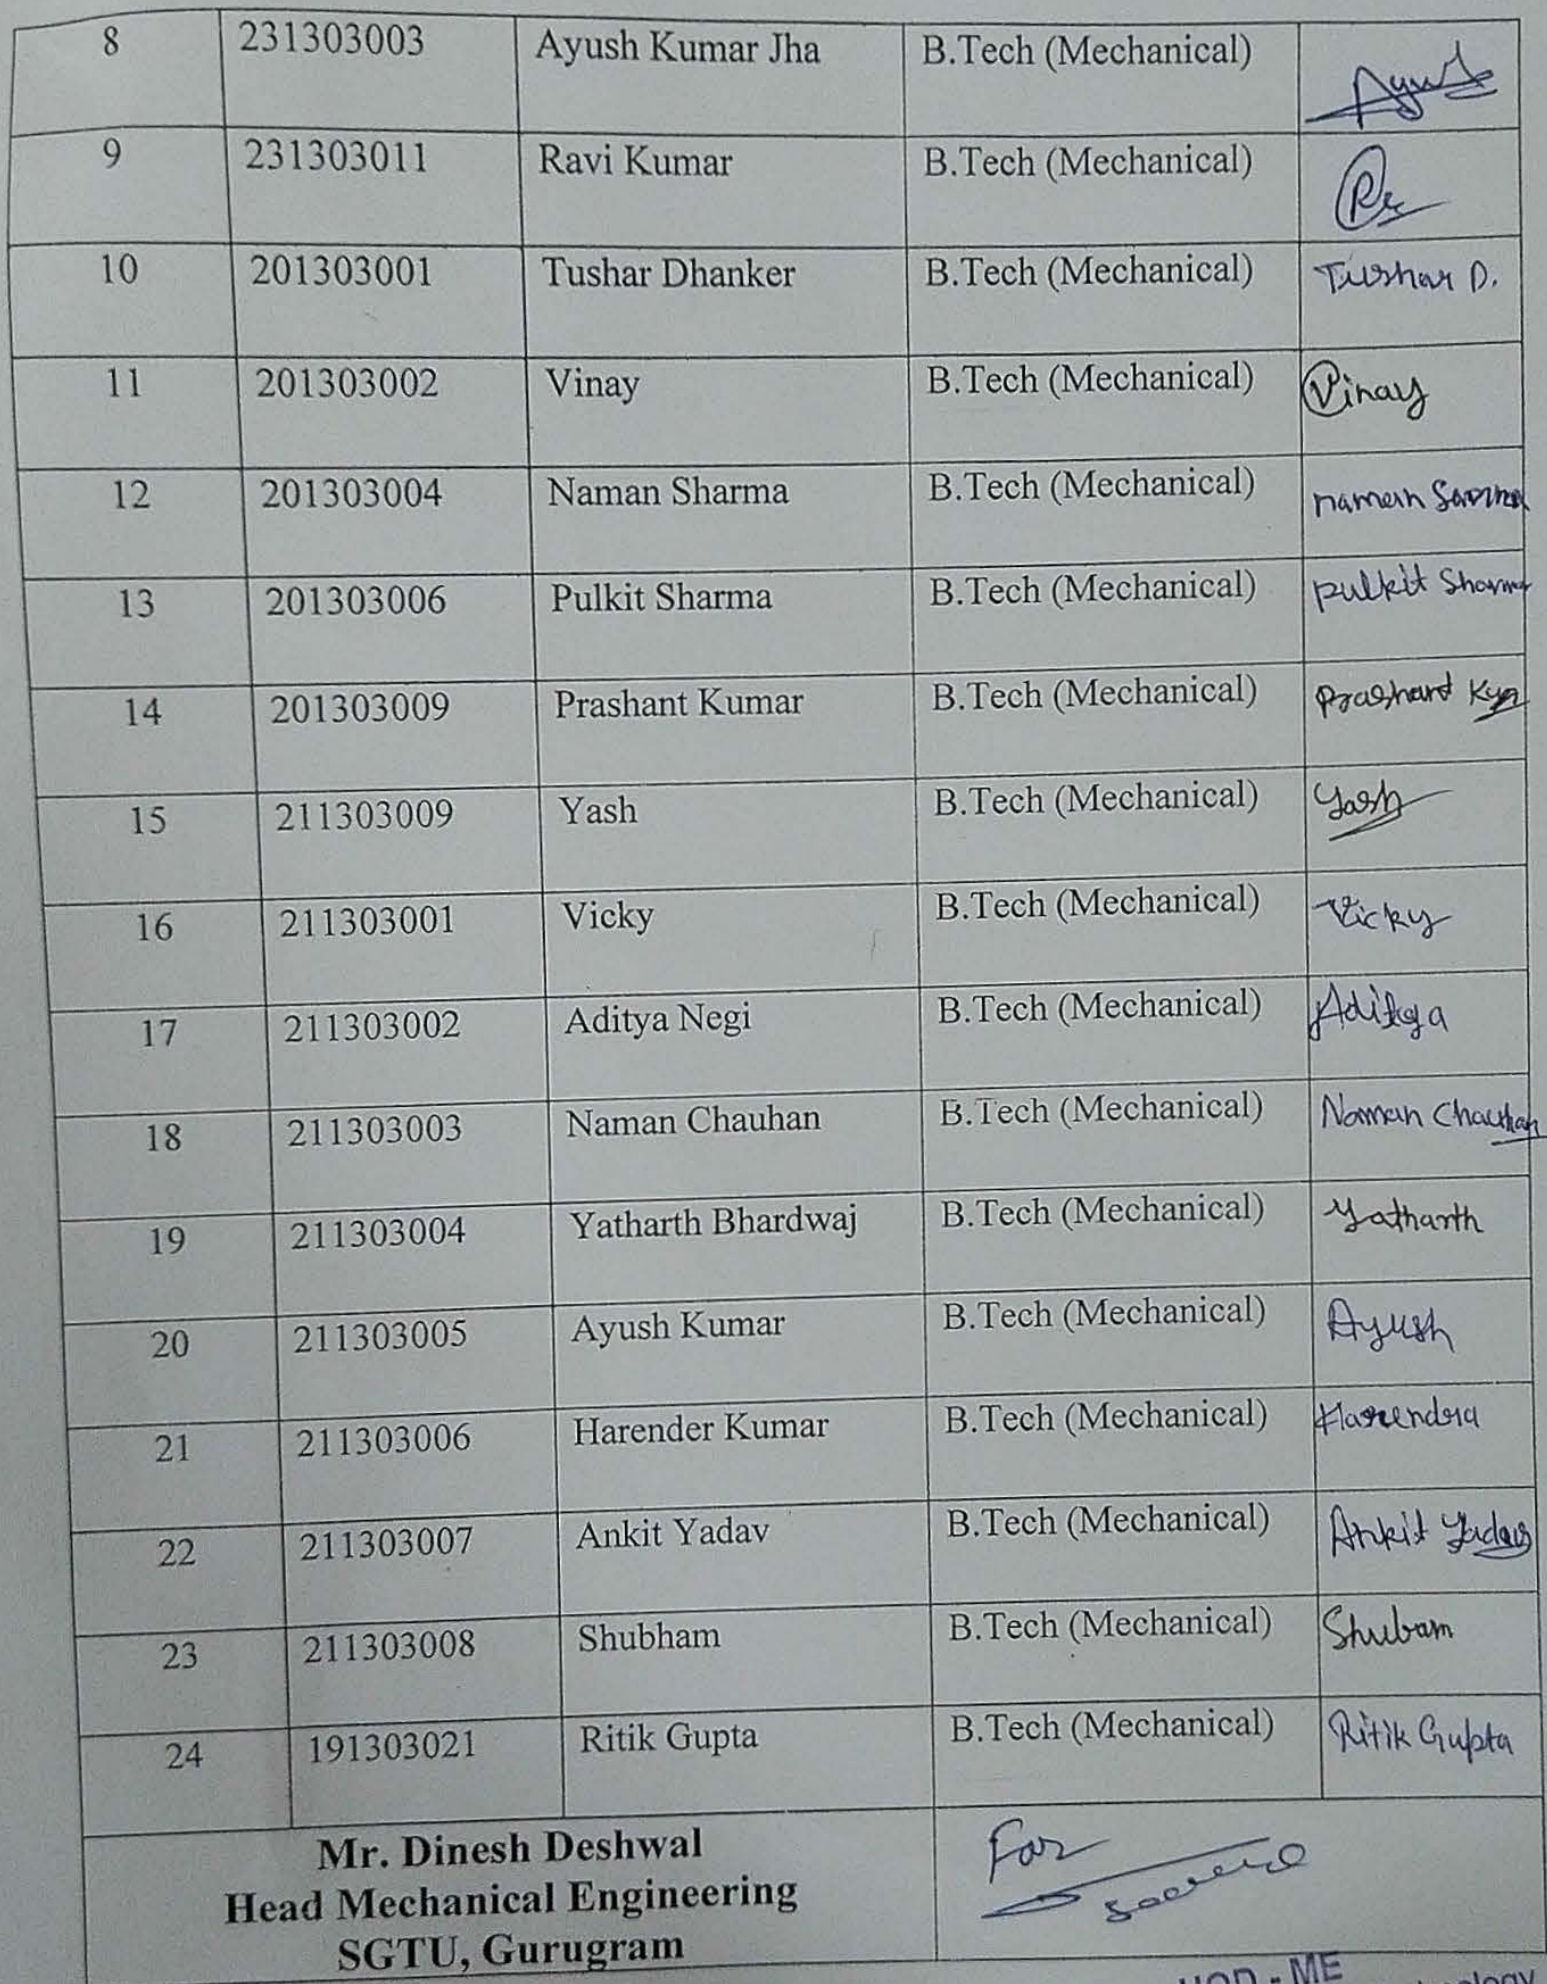 8 231303003 Ayush Kumar Jha B.Tech (Mechanical) Ayush
9 231303011 Ravi Kumar B.Tech (Mechanical)
10 201303001 Tushar Dhanker B.Tech (Mechanical) Tushar D.
11 201303002 Vinay B.Tech (Mechanical) Vinay
12 201303004 Naman Sharma B.Tech (Mechanical) naman
13 201303006 Pulkit Sharma B.Tech (Mechanical) pulkit Sharma
14 201303009 Prashant Kumar B.Tech (Mechanical) Prashant
15 211303009 Yash B.Tech (Mechanical) Yash
16 211303001 Vicky B.Tech (Mechanical) Vicky
17 211303002 Aditya Negi B.Tech (Mechanical) Aditya
18 211303003 Naman Chauhan B.Tech (Mechanical) Naman Chauhan
19 211303004 Yatharth Bhardwaj B.Tech (Mechanical) Yatharth
20 211303005 Ayush Kumar B.Tech (Mechanical) Ayush
21 211303006 Harender Kumar B.Tech (Mechanical) Harendra
22 211303007 Ankit Yadav B.Tech (Mechanical) Ankit Yadav
23 211303008 Shubham B.Tech (Mechanical) Shubam
24 191303021 Ritik Gupta B.Tech (Mechanical) Ritik Gupta
Mr. Dinesh Deshwal For
Head Mechanical Engineering
SGTU, Gurugram
HOD - ME